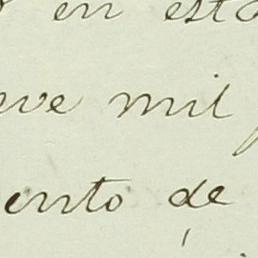 en esta
eve mil
ento de